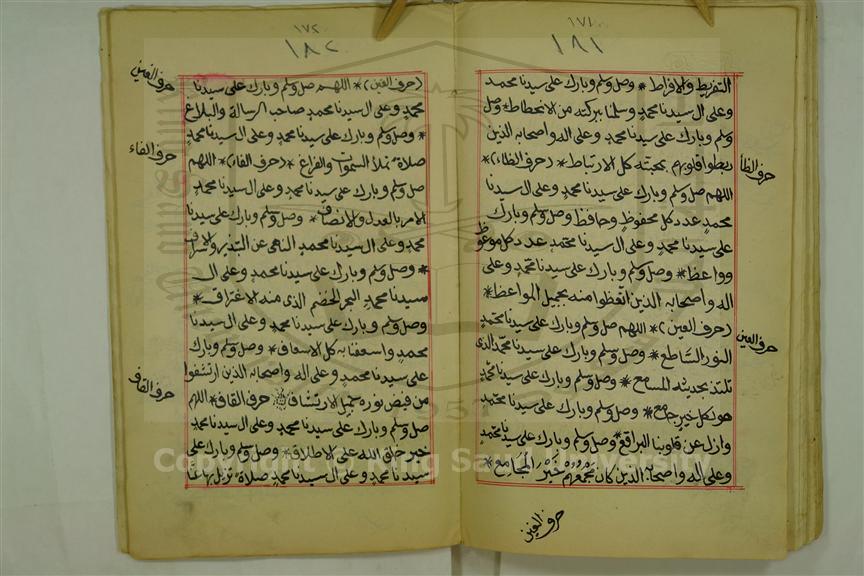 ١٧١
١٨١
التفريط والافراط * وصل وسلم وبارك على سيدنا محمد
وعلى ال سيدنا محمد وسلمنا ببركته من الانحطاط * وصل
وسلم وبارك على سيدنا محمد وعلى اله واصحابه الذين
ربطوا قلوبهم بمحبته كل الارتباط * (حرف الظاء) *
اللهم صل وسلم وبارك على سيدنا محمد وعلى ال سيدنا
محمد عدد كل محفوظ وحافظ وصل وسلم وبارك
على سيدنا محمد وعلى ال سيدنا محمد عدد كل موعوظ
وواعظ * وصل وسلم وبارك على سيدنا محمد وعلى
اله واصحابه الذين اتعظوا منه بجميل المواعظ *
(حرف العين) * اللهم صل وسلم وبارك على سيدنا محمد
النور الساطع * وصل وسلم وبارك على سيدنا محمد الذى
تلتذ بحديثه المسامع * وصل وسلم وبارك على سيدنا محمد
هو لكل خير جامع * وصل وسلم وبارك على سيدنا محمد
وازل عن قلوبنا البراقع * وصل وسلم وبارك على سيدنا محمد
وعلى اله واصحابه الذين كان مجموعهم خير المجامع *
حرف الظا
حرف العين
حرف الغين
١٧٢
١٨٢
(حرف الغين) * اللهم صل وسلم وبارك على سيدنا
محمد وعلى ال سيدنا محمد صاحب الرسالة والبلاغ
* وصل وسلم وبارك على سيدنا محمد وعلى ال سيدنا محمد
صلاة تملأ السموات والفراغ * (حرف الفاء) * اللهم
صل وسلم وبارك على سيدنا محمد وعلى ال سيدنا محمد
الامر بالعدل والانصاف * وصل وسلم وبارك على سيدنا
محمد وعلى ال سيدنا محمد الناهى عن التبذير والاسراف
* وصل وسلم وبارك على سيدنا محمد وعلى ال
سيدنا محمد البحر الخضم الذى منه الاغتراف *
وصل وسلم وبارك على سيدنا محمد وعلى ال سيدنا
محمد واسعفنا به كل الاسعاف * وصل وسلم وبارك
على سيدنا محمد وعلى اله واصحابه الذين ارتشفوا
من فيض نوره جميل الارتشاف * حرف القاف * اللهم
صل وسلم وبارك على سيدنا محمد وعلى ال سيدنا محمد
خير خلق الله على الاطلاق * وصل وسلم وبارك على
سيدنا محمد وعلى ال سيدنا محمد صلاة تزيل بها عنا
حرف الغين
حرف الفاء
حرف القاف
1957
Copyright © King Saud University